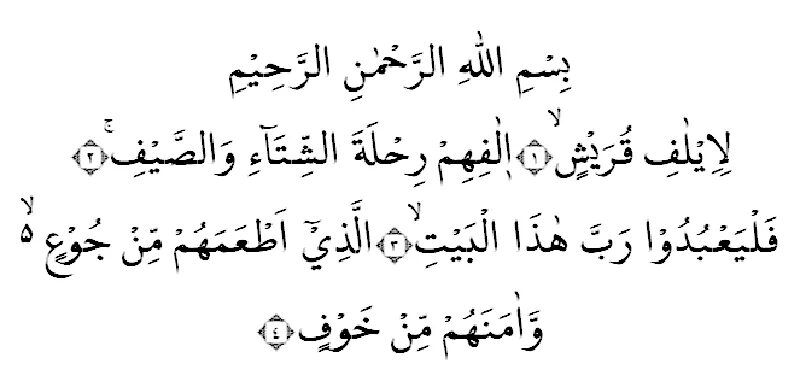 بِسْمِ اللّٰهِ الرَّحْمٰنِ الرَّحِيْمِ
لِاِيْلٰفِ قُرَيْشٍۙ ١ اٖلٰفِهِمْ رِحْلَةَ الشِّتَاۤءِ وَالصَّيْفِۚ ٢
فَلْيَعْبُدُوْا رَبَّ هٰذَا الْبَيْتِۙ ٣ الَّذِيْٓ اَطْعَمَهُمْ مِّنْ جُوْعٍ ەۙ
وَّاٰمَنَهُمْ مِّنْ خَوْفٍ ٤